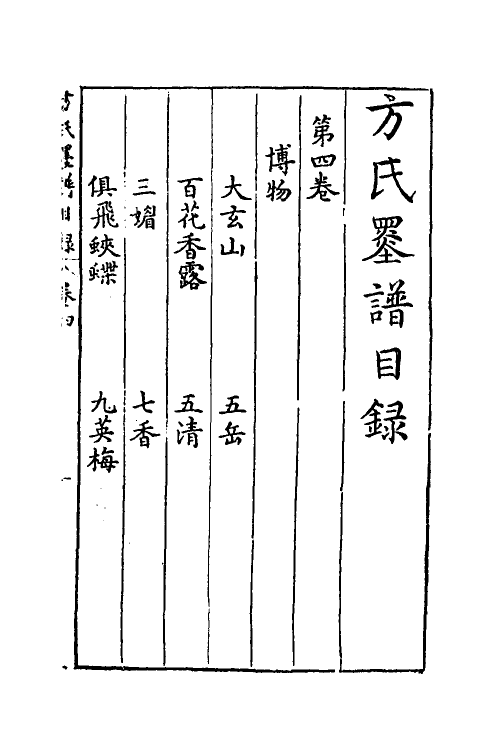 方氏墨譜目録
第四卷
博物
大玄山　五岳
百花香露　五清
三媚　七香
俱飛蛺蝶　九英梅
方氏墨譜目録　卷四　一